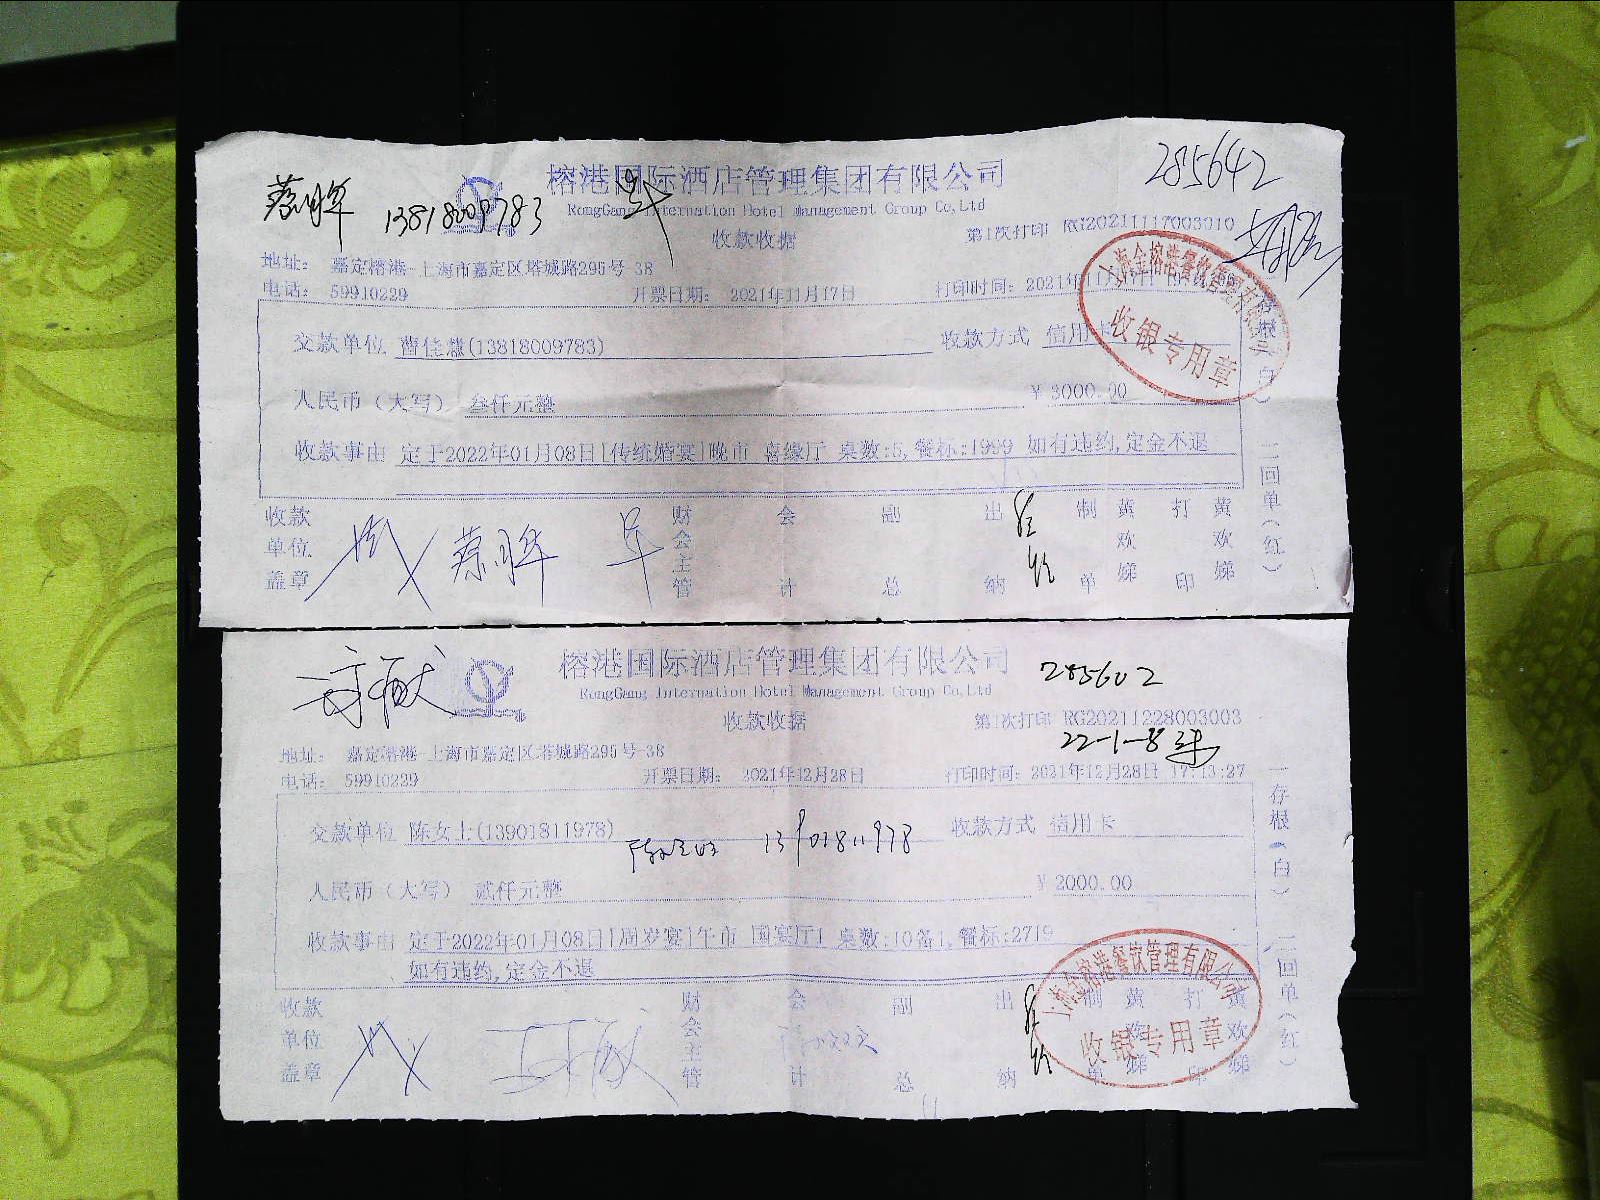 285642
榕港国际酒店管理集团有限公司
蔡晖 13818009783
RongGang Internation Hotel Management Group Co,Ltd
收款收据 第1次打印 RG20211117003010
地址： 嘉定榕港-上海市嘉定区塔城路295号-38
电话： 59910229 开票日期： 2021年11月17日 打印时间：2021年11月17日
上海金榕港餐饮管理有限公司
收银专用章
交款单位 曹佳慧(13818009783) 收款方式 信用卡
人民币（大写） 叁仟元整 ￥3000.00
收款事由 定于2022年01月08日[传统婚宴]晚市 喜缘厅 桌数:5,餐标:1999 如有违约,定金不退
一存根（白） 二回单（红）
收款单位盖章 蔡晖 财会主管 会计 副总 出纳 制单 黄欢娣 打印 黄欢娣
榕港国际酒店管理集团有限公司
285602
RongGang Internation Hotel Management Group Co,Ltd
收款收据 第1次打印 RG20211228003003
22-1-8
地址： 嘉定榕港-上海市嘉定区塔城路295号-38
电话： 59910229 开票日期： 2021年12月28日 打印时间：2021年12月28日 17:13:27
交款单位 陈女士(13901811978) 收款方式 信用卡
13901811978
人民币（大写） 贰仟元整 ￥2000.00
收款事由 定于2022年01月08日[周岁宴]午市 国宴厅1 桌数:10备1,餐标:2719
如有违约,定金不退
一存根（白） 二回单（红）
上海金榕港餐饮管理有限公司
收银专用章
收款单位盖章 财会主管 会计 副总 出纳 制单 黄欢娣 打印 黄欢娣